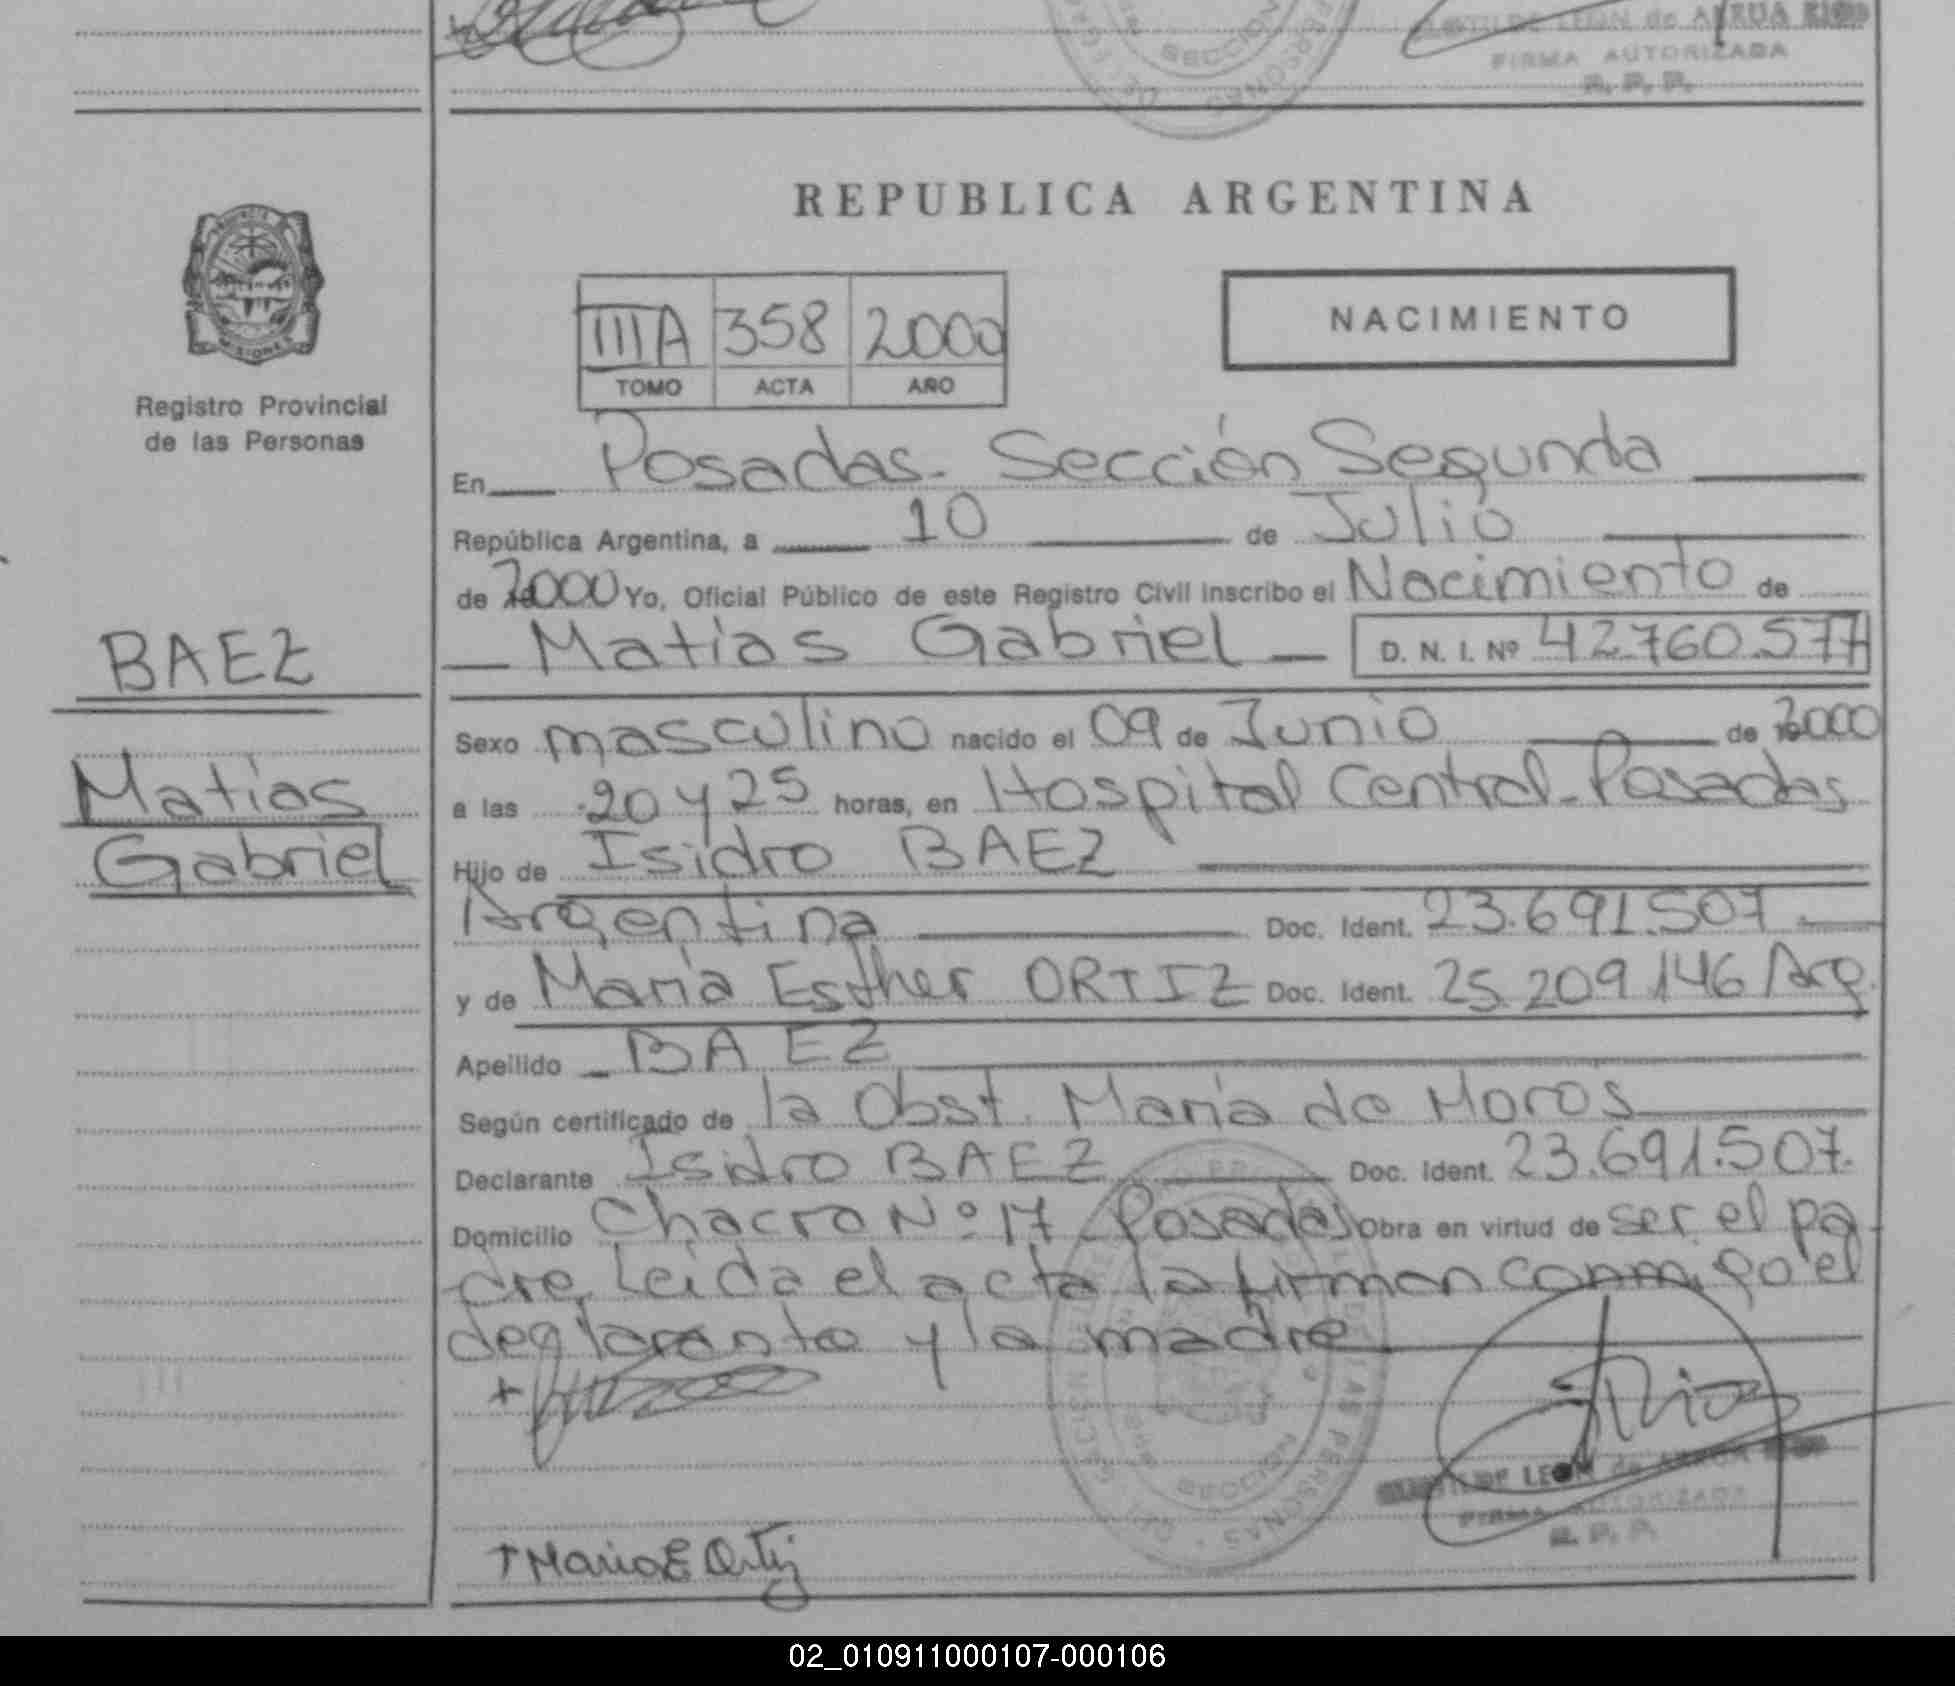 FIRMA AUTORIZADA
R. P. P.
REPUBLICA ARGENTINA
NACIMIENTO
IIIA 358 2000
TOMO ACTA AÑO
Registro Provincial
de las Personas
En Posadas - Sección Segunda
República Argentina, a 10 de Julio
de 2000 Yo, Oficial Público de este Registro Civil inscribo el Nacimiento de
Matias Gabriel D. N. I. Nº 42.760.577
BAEZ
Matias
Gabriel
Sexo masculino nacido el 09 de Junio de 2000
a las 20 y 25 horas, en Hospital Central - Posadas
Hijo de Isidro BAEZ
Argentina Doc. Ident. 23.691.507
y de Maria Esther ORTIZ Doc. Ident. 25.209.146 Arg.
Apellido BAEZ
Según certificado de la Obst. Maria de Moros
Declarante Isidro BAEZ Doc. Ident. 23.691.507.
Domicilio Chacra Nº 17 Posadas Obra en virtud de ser el pa-
dre. Leida el acta la firman conmigo el
declarante y la madre
LEON de
FIRMA AUTORIZADA
R. P. P.
Maria E Ortiz
02_010911000107-000106